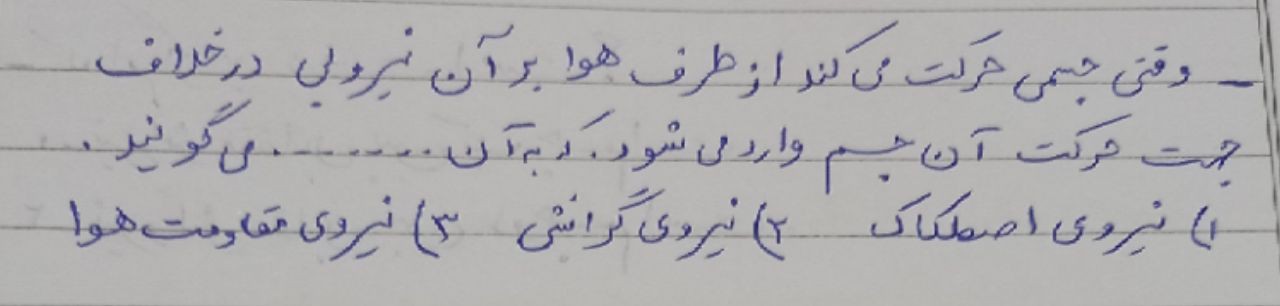 - وقتی جسمی حرکت می کند از طرف هوا بر آن نیرویی در خلاف
جهت حرکت آن جسم وارد می شود. که به آن ........ می گویند.
۱) نیروی اصطکاک ۲) نیروی گرانشی ۳) نیروی مقاومت هوا